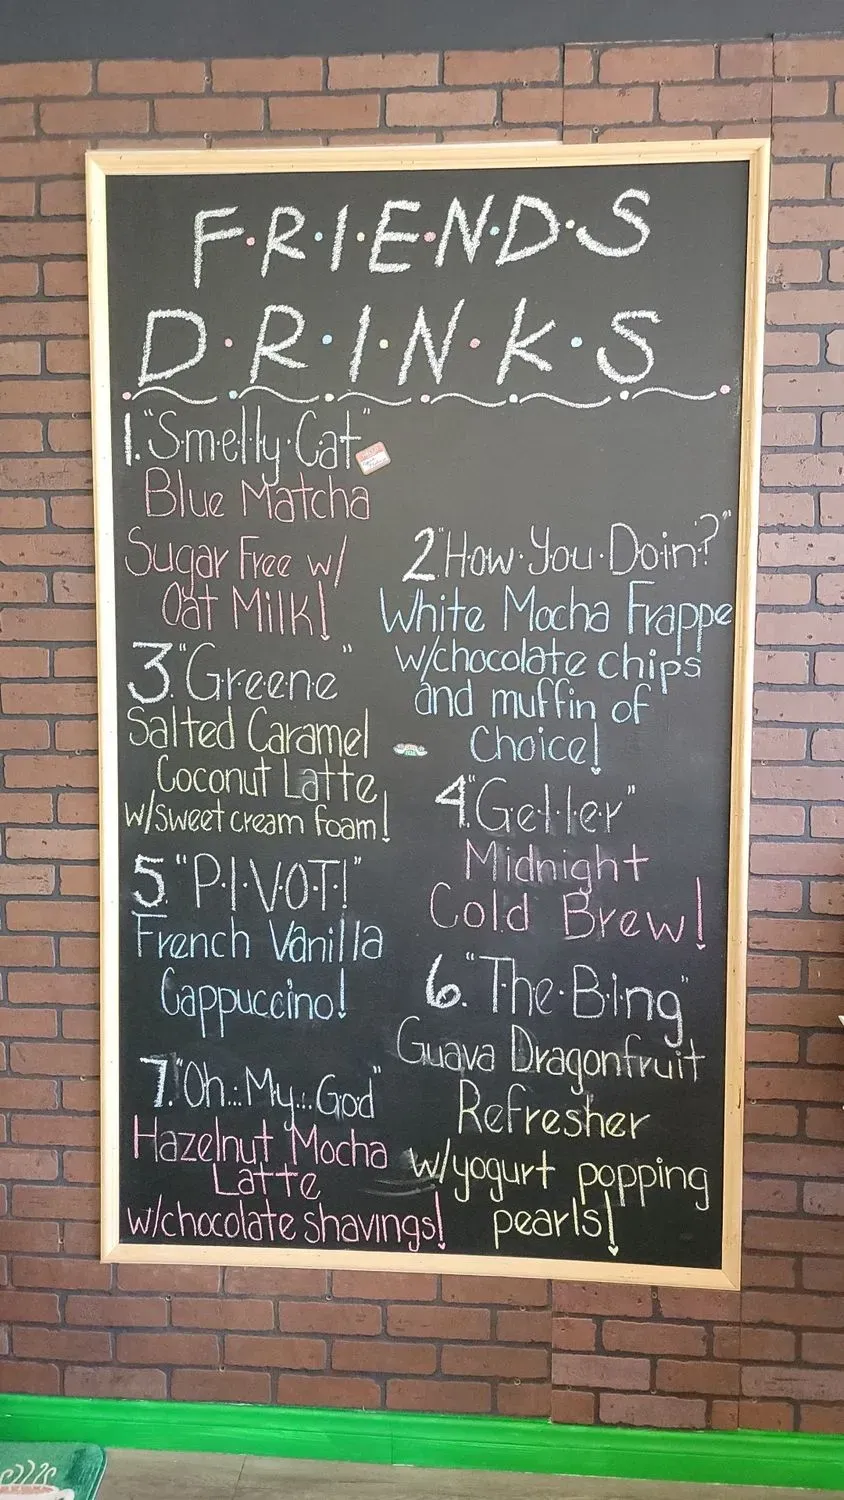 F·R·I·E·N·D·S
D·R·I·N·K·S
1. "Smelly·Cat"
Blue Matcha
Sugar Free w/
Oat Milk!
2. "How·You·Doin'?"
White Mocha Frappe
w/chocolate chips
and muffin of
Choice!
3. "Greene"
Salted Caramel
Coconut Latte
w/sweet cream foam!
4. "Ge·l·le·r"
Midnight
Cold Brew!
5 "P·I·V·O·T!"
French Vanilla
Cappuccino!
6. "The·B·i·n·g"
Guava Dragonfruit
Refresher
w/yogurt popping
pearls!
7. "Oh...My...God"
Hazelnut Mocha
Latte
w/chocolate shavings!